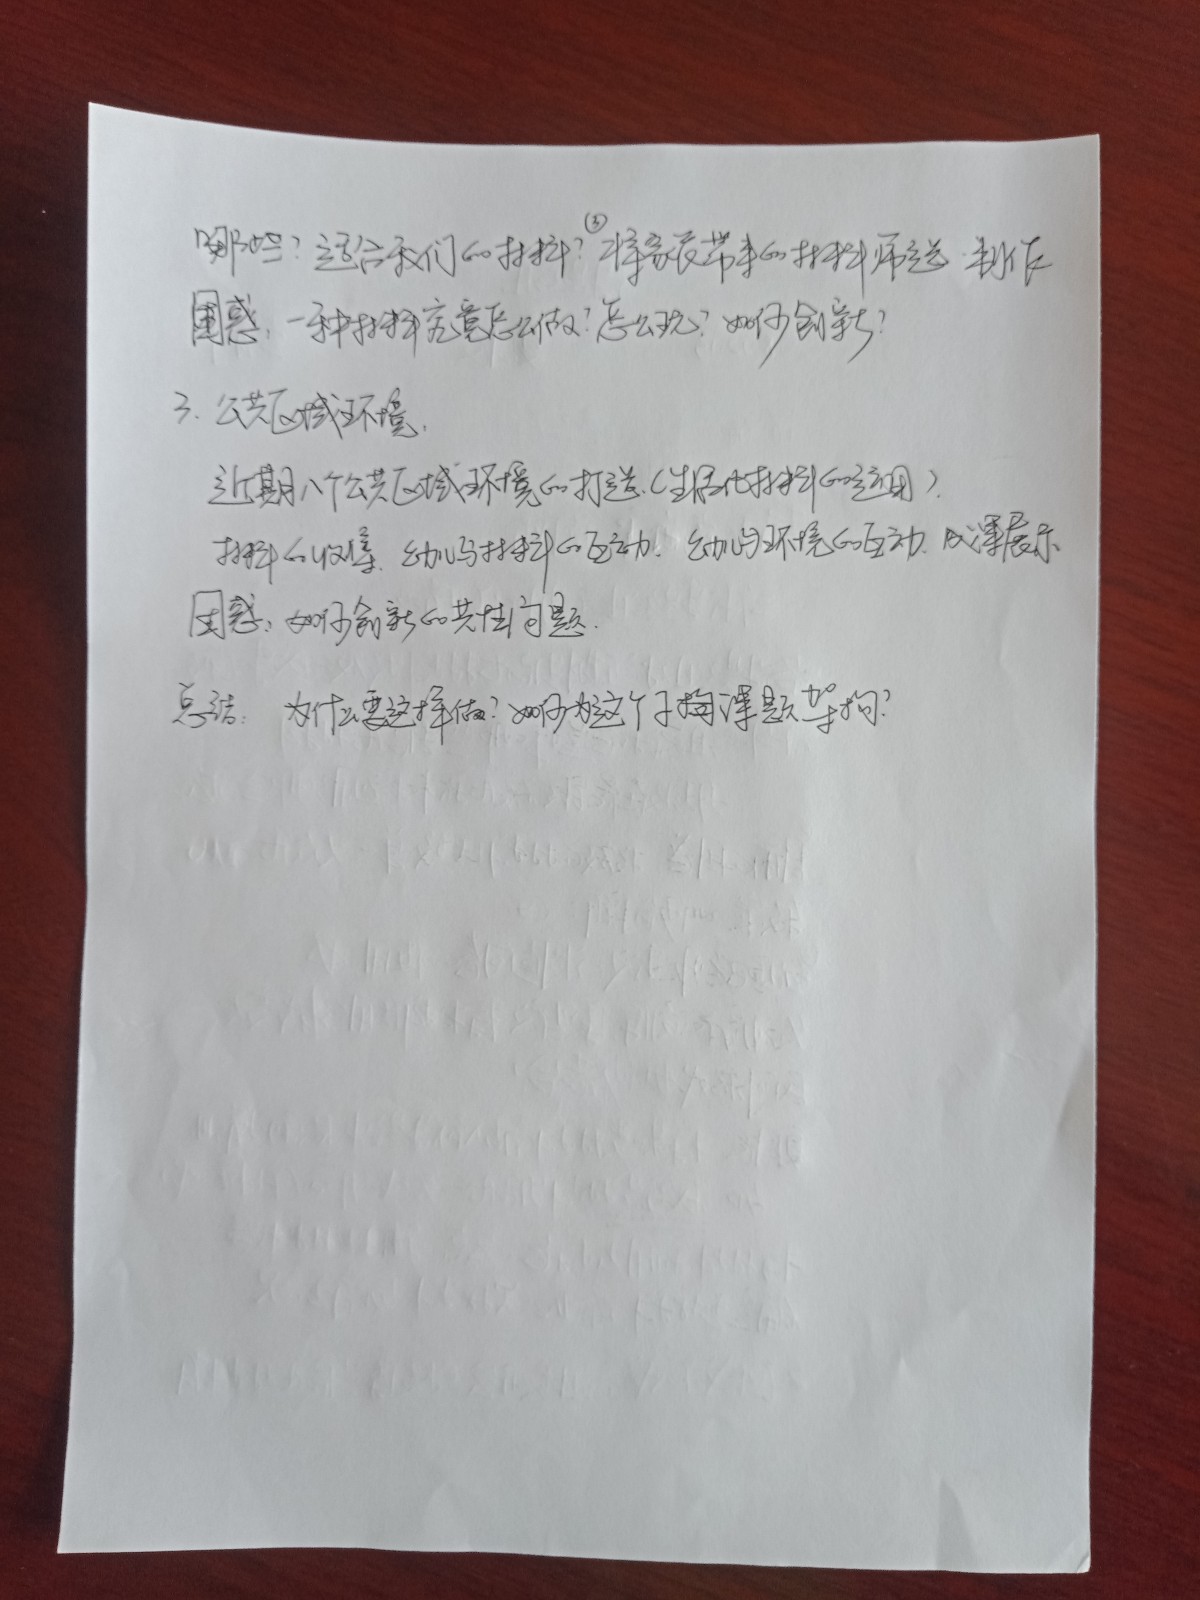 哪些？适合我们的材料？③将家长带来的材料师造.制作
困惑：一种材料究竟怎么做？怎么玩？如何创新？
3. 公共区域环境.
近期八个公共区域环境的打造.（生活化材料的运用）.
材料的收集.幼儿与材料的互动.幼儿与环境的互动.成课展示
困惑：如何创新的共性问题.
总结：为什么要这样做？如何为这个子课题架构？